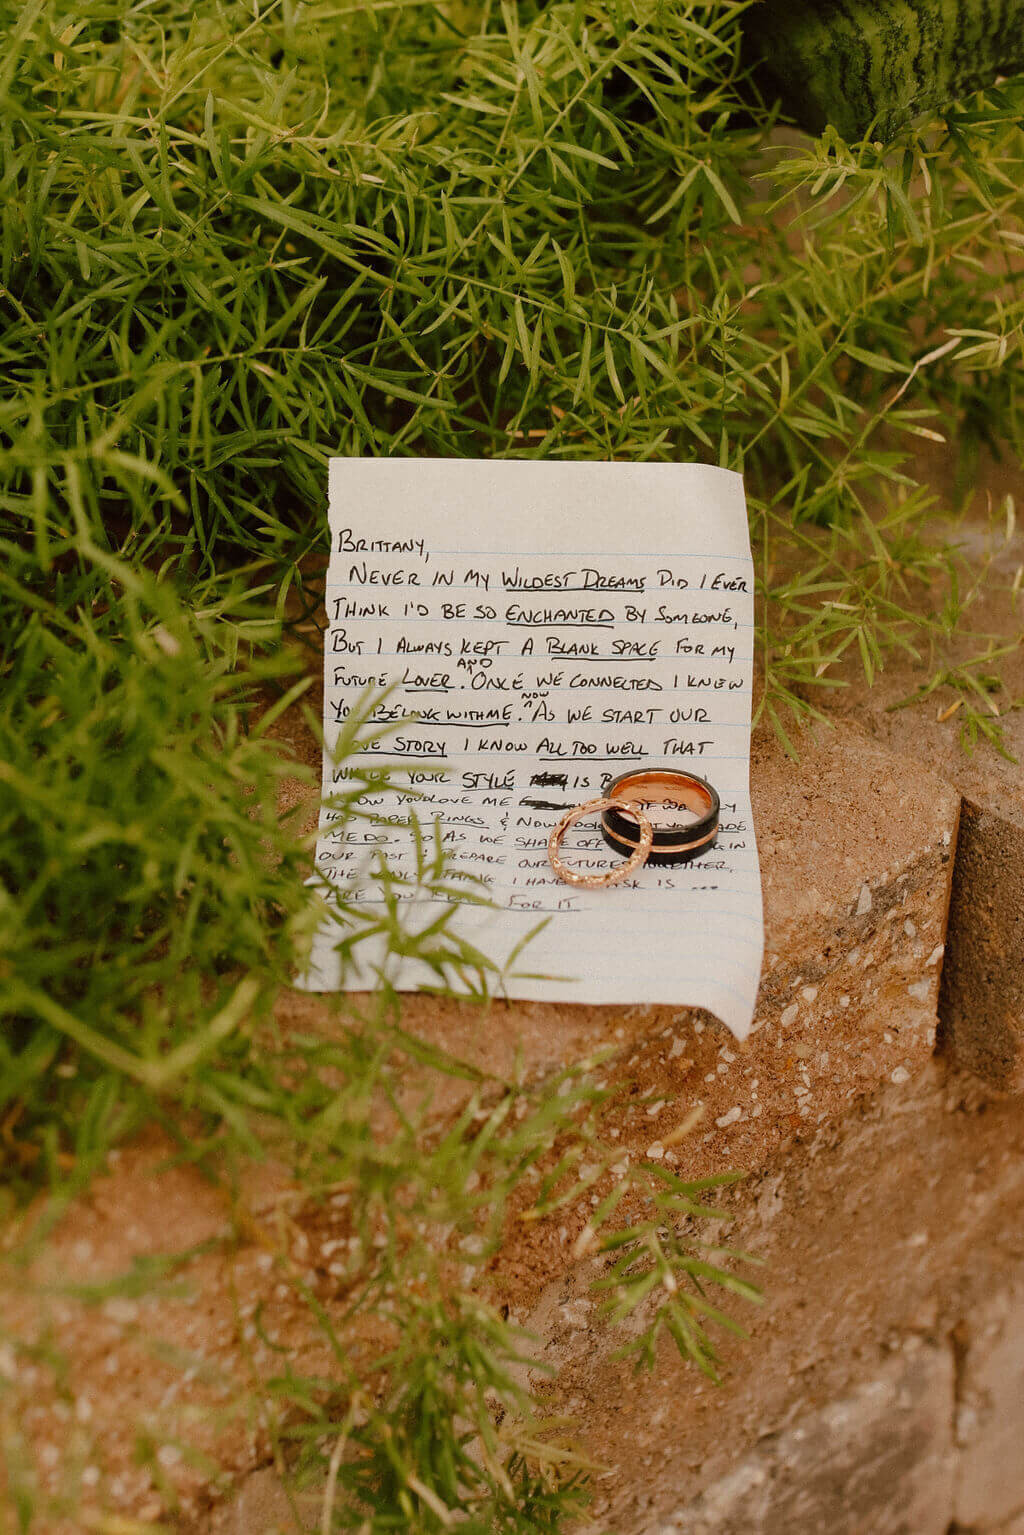 BRITTANY,
NEVER IN MY WILDEST DREAMS DID I EVER
THINK I'D BE SO ENCHANTED BY SOMEONE,
BUT I ALWAYS KEPT A BLANK SPACE FOR MY
FUTURE LOVER. AND ONCE WE CONNECTED I KNEW
YOU BELONG WITH ME. NOW AS WE START OUR
LOVE STORY I KNOW ALL TOO WELL THAT
WHILE YOUR STYLE IS
KNOW YOU'D LOVE ME IF WE
HAD PAPER RINGS & NOW LOOK YOU MADE
ME DO. SO AS WE SHAKE OFF
OUR PAST & PREPARE OUR FUTURES TOGETHER,
THE ONLY THING I HAVE ASK IS ...
ARE YOU READY FOR IT